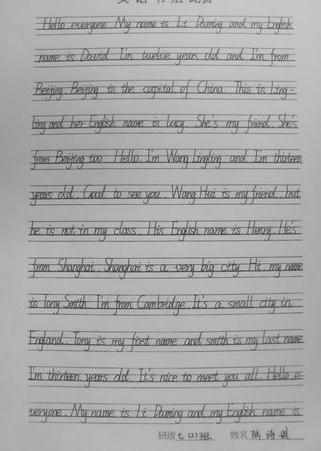 Hello everyone. My name is Li Daming and my English
name is David. I'm twelve years old and I'm from
Beijing. Beijing is the capital of China. This is Ling-
ling and her English name is Lucy. She's my friend. She's
from Beijing too. Hello. I'm Wang Lingling and I'm thirteen
years old. Good to see you. Wang Hui is my friend, but
he is not in my class. His English name is Henry. He's
from Shanghai. Shanghai is a very big city. Hi, my name
is Tony Smith. I'm from Cambridge. It's a small city in
England. Tony is my first name and smith is my last name
I'm thirteen years old. It's nice to meet you all. Hello e
veryone. My name is Li Daming and my English name is